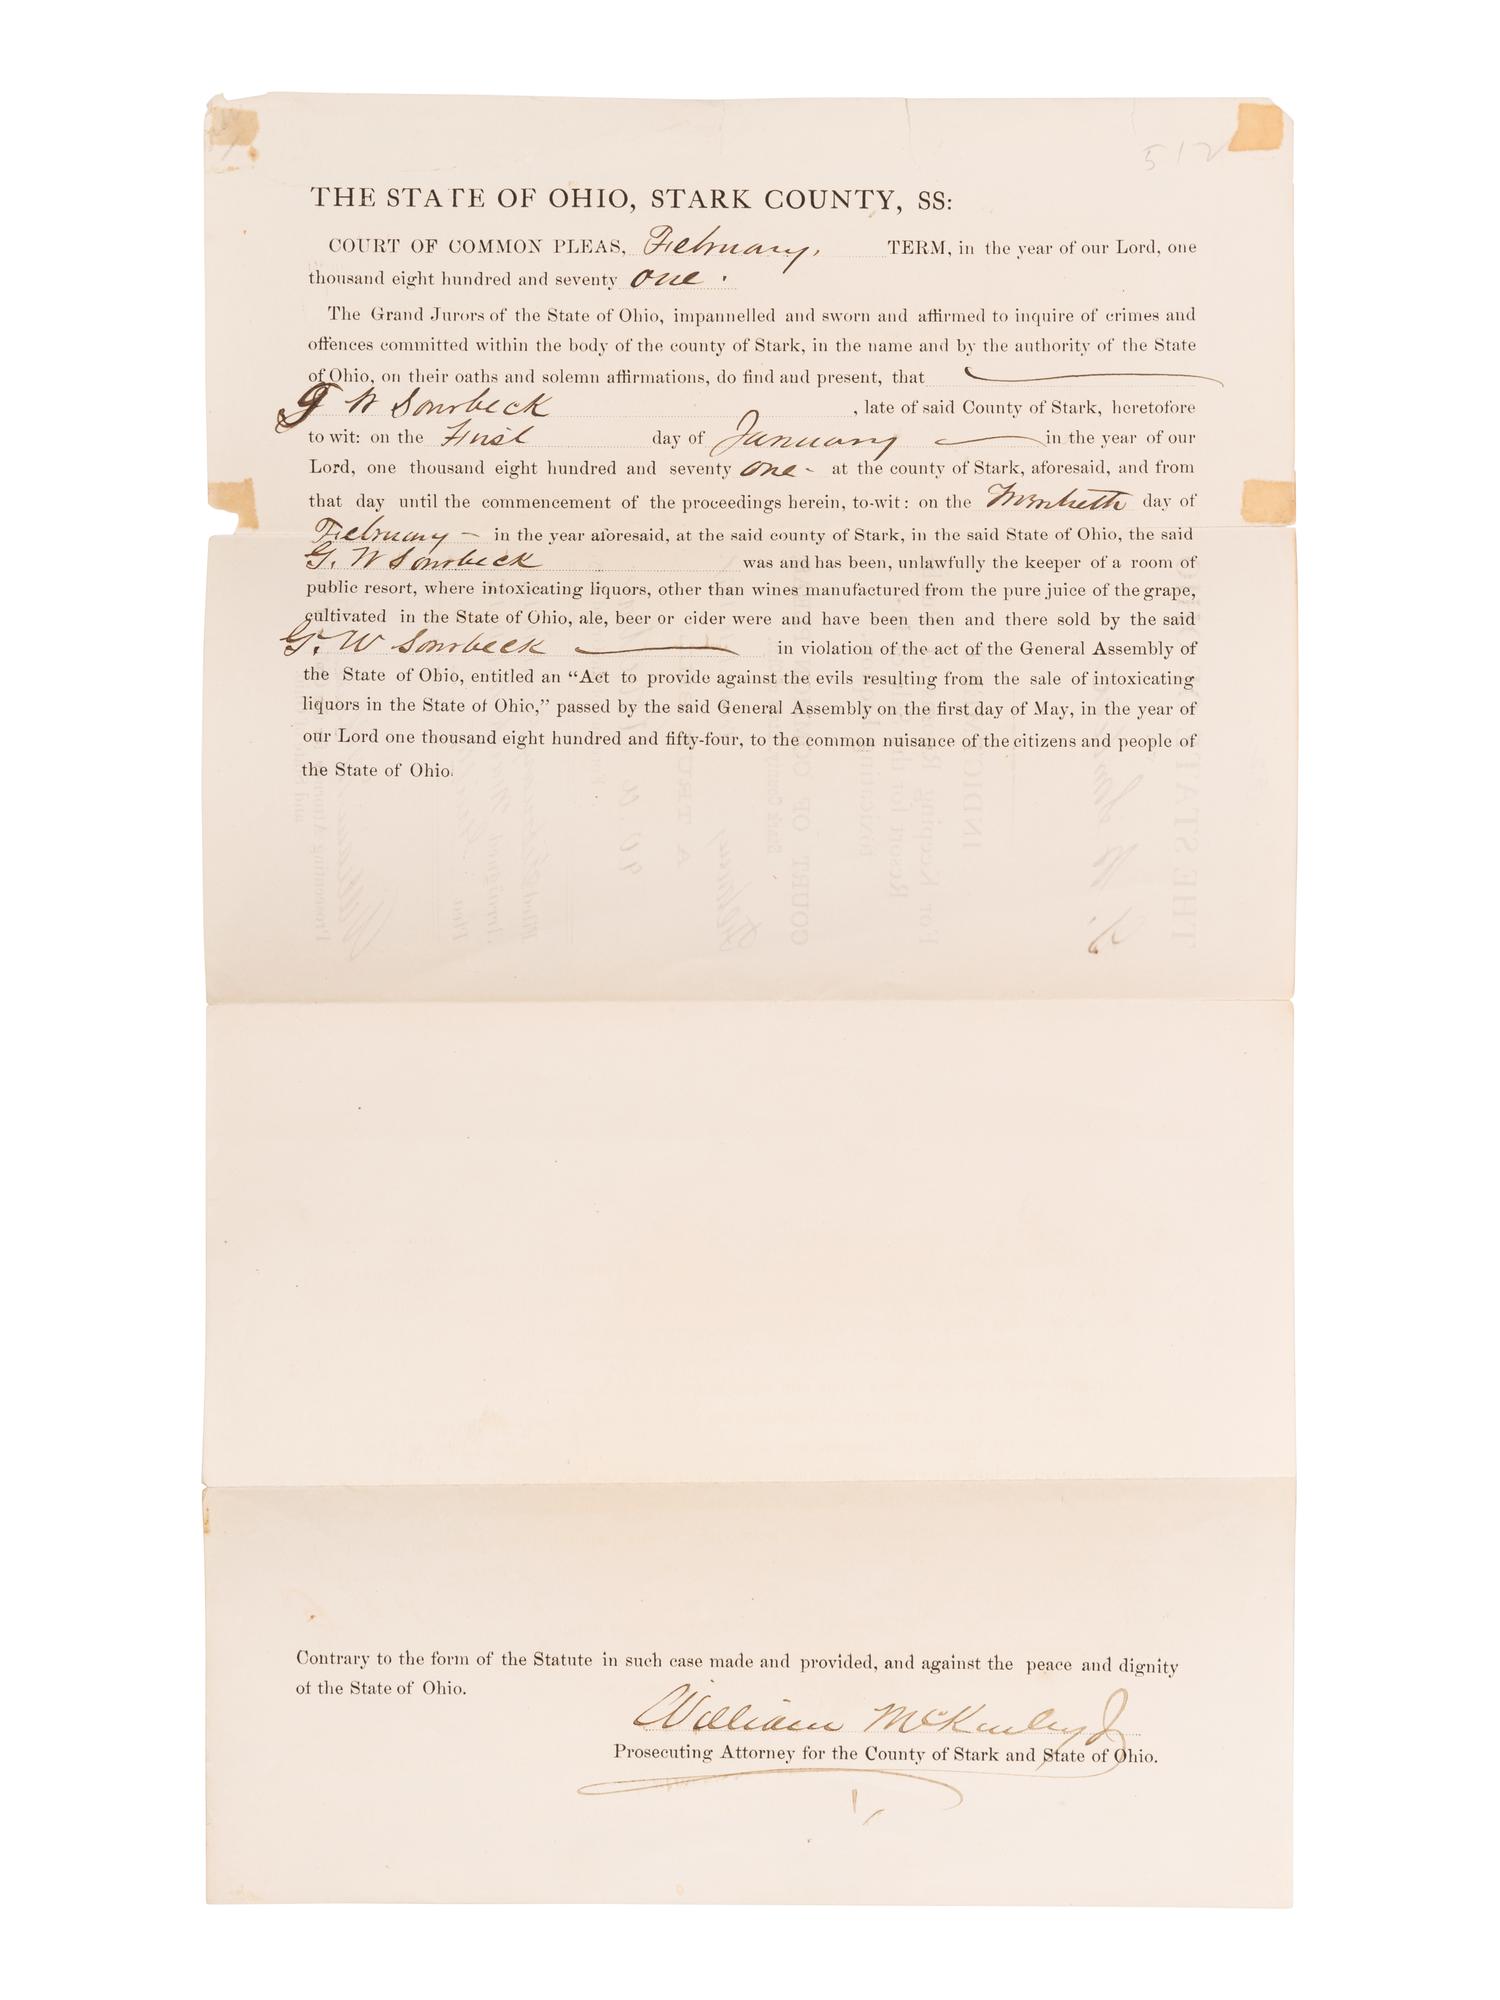 512
THE STATE OF OHIO, STARK COUNTY, SS:
COURT OF COMMON PLEAS, February, TERM, in the year of our Lord, one
thousand eight hundred and seventy one.
The Grand Jurors of the State of Ohio, impannelled and sworn and affirmed to inquire of crimes and
offences committed within the body of the county of Stark, in the name and by the authority of the State
of Ohio, on their oaths and solemn affirmations, do find and present, that
G W Sourbeck , late of said County of Stark, heretofore
to wit: on the First day of January in the year of our
Lord, one thousand eight hundred and seventy one - at the county of Stark, aforesaid, and from
that day until the commencement of the proceedings herein, to-wit: on the day of
February - in the year aforesaid, at the said county of Stark, in the said State of Ohio, the said
G. W Sourbeck was and has been, unlawfully the keeper of a room of
public resort, where intoxicating liquors, other than wines manufactured from the pure juice of the grape,
cultivated in the State of Ohio, ale, beer or cider were and have been then and there sold by the said
G. W Sourbeck in violation of the act of the General Assembly of
the State of Ohio, entitled an “Act to provide against the evils resulting from the sale of intoxicating
liquors in the State of Ohio,” passed by the said General Assembly on the first day of May, in the year of
our Lord one thousand eight hundred and fifty-four, to the common nuisance of the citizens and people of
the State of Ohio.
Contrary to the form of the Statute in such case made and provided, and against the peace and dignity
of the State of Ohio.
William McKinley Jr
Prosecuting Attorney for the County of Stark and State of Ohio.